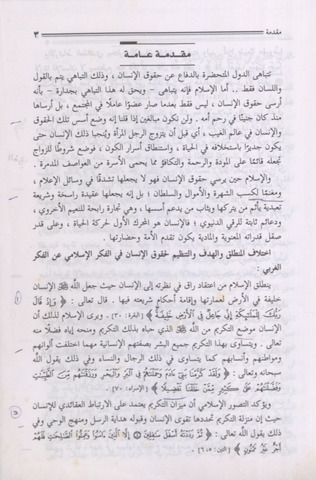 مقدمة ٣
مقدمة عامة
تتباهى الدول المتحضرة بالدفاع عن حقوق الإنسان ، وذلك التباهي يتم بالقول
واللسان فقط .. أما الإسلام فإنه يتباهى – ويحق له هذا التباهي بجدارة – بأنه
أرسى حقوق الإنسان ، ليس فقط بعدما صار عضوًا عاملًا في المجتمع ، بل أرساها
منذ كان جنينًا في رحم أمه . ولن نكون مبالغين إذا قلنا إنه وضع أسس تلك الحقوق
والإنسان في عالم الغيب ، أي قبل أن يتزوج الرجل المرأة ويُنجبا ذلك الإنسان حتى
يكون جديرًا باستخلافه في الحياة ، واستنطاق أسرار الكون ، فوضع شروطًا للزواج
تجعله قائمًا على المودة والرحمة والتكافؤ مما يحمى الأسرة من العواصف المدمرة .
والإسلام حين يرسي حقوق الإنسان فهو لا يجعلها تشدقًا في وسائل الإعلام ،
ومغنمًا لكسب الشهرة والأموال والسلطان ؛ بل إنه يجعلها عقيدة راسخة وشريعة
تعبدية يأثم من يتركها ويثاب من يدعم أسسها ، وهي تجارة رابحة للنعيم الأخروي ،
ودعائم ثابتة للرقي الدنيوي ؛ فالإنسان هو المحرك الأول لحركة الحياة ، وعلى قدر
صقل قدراته المعنوية والمادية يكون تقدم الأمة وحضارتها .
اختلاف المنطلق والهدف والتنظيم لحقوق الإنسان في الفكر الإسلامي عن الفكر
الغربي :
ينطلق الإسلام من اعتقاد راق في نظرته إلى الإنسان حيث جعل الله ﷻ الإنسان
خليفة في الأرض لعمارتها وإقامة أحكام شريعته فيها . قال تعالى : ﴿ وَإِذْ قَالَ
رَبُّكَ لِلْمَلَٰٓئِكَةِ إِنِّى جَاعِلٌ فِى ٱلْأَرْضِ خَلِيفَةً ﴾ [البقرة : ٣٠] . ويرى الإسلام لذلك أن
الإنسان موضع التكريم من الله ﷻ الذي حباه بذلك التكريم ومنحه إياه فضلًا منه
تعالى . ويتساوى بهذا التكريم جميع البشر بصفتهم الإنسانية مهما اختلفت ألوانهم
ومواطنهم وأنسابهم كما يتساوى في ذلك الرجال والنساء وفي ذلك يقول الله
سبحانه وتعالى : ﴿ وَلَقَدْ كَرَّمْنَا بَنِىٓ ءَادَمَ وَحَمَلْنَٰهُمْ فِى ٱلْبَرِّ وَٱلْبَحْرِ وَرَزَقْنَٰهُم مِّنَ ٱلطَّيِّبَٰتِ
وَفَضَّلْنَٰهُمْ عَلَىٰ كَثِيرٍ مِّمَّنْ خَلَقْنَا تَفْضِيلًا ﴾ [الإسراء : ٧٠] .
ويؤكد التصور الإسلامي أن ميزان التكريم يعتمد على الارتباط العقائدي للإنسان
حيث إن منزلة التكريم تحددها تقوى الإنسان وقبوله هداية الرسل ومنهج الوحي وفي
ذلك يقول الله تعالى : ﴿ ثُمَّ رَدَدْنَٰهُ أَسْفَلَ سَٰفِلِينَ ۝ إِلَّا ٱلَّذِينَ ءَامَنُوا۟ وَعَمِلُوا۟ ٱلصَّٰلِحَٰتِ فَلَهُمْ
أَجْرٌ غَيْرُ مَمْنُونٍ ﴾ [التين : ٥ ، ٦] .